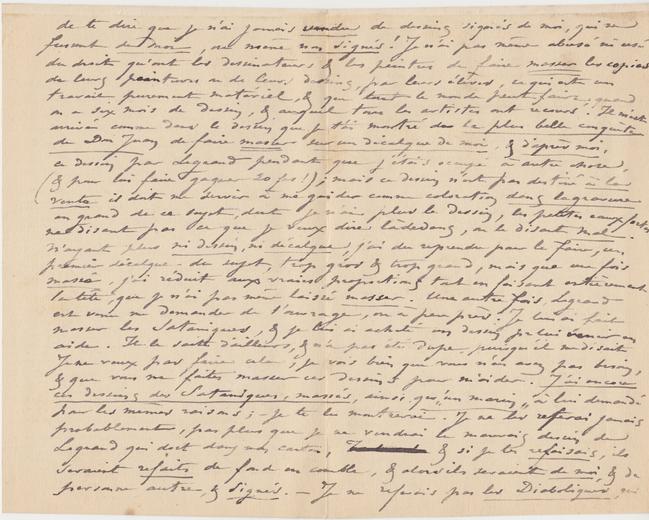 de te dire que je n'ai jamais vendu de dessins signés de moi, qui ne
fussent de moi, ou même non signés! Je n'ai pas même abusé ni usé
du droit qu'ont les dessinateurs & les peintres de faire masser les copies
de leurs peintures ou de leurs dessins, par leurs élèves, ce qui est un
travail purement matériel, & que tout le monde peut faire, quand
on a six mois de dessin, & auquel tous les artistes ont recours! Il m'est
arrivé comme dans le dessin que je t'ai montré de la plus belle conquête
de Don Juan de faire masser sur un décalque de moi, & d'après moi,
ce dessin par Legrand pendant que j'étais occupé à autre chose,
(& pour lui faire gagner 20 fs!); mais ce dessin n'est pas destiné à la
vente il doit me servir à me guider comme coloration dans la gravure
en grand de ce sujet, dont je n'ai plus le dessin, les petites eaux fortes
ne disant pas ce que je veux dire là dedans, ou le disant mal.
N'ayant plus ni dessin, ni décalque, j'ai du reprendre pour le faire, un
premier décalque du sujet, trop gros & trop grand, mais que une fois
massé j'ai réduit aux vraies proportions tout en faisant entièrement
la tête, que je n'ai pas même laissé masser. Une autre fois, Legrand
est venu me demander de l'ouvrage, ou à peu près. Je lui ai fait
masser les Sataniques, & je lui ai acheté un dessin pr lui venir en
aide. Il le savait d'ailleurs, & n'a pas été dupe, puisqu'il me disait
Je ne veux pas faire cela; je vois bien que vous n'en avez pas besoin,
& que vous me faites masser ces dessins pour m'aider. J'ai encore
ces dessins des Sataniques, massés, ainsi qu'un marin, à lui demandé
par les mêmes raisons; – je te les montrerai. Je ne les referai jamais
probablement, pas plus que je ne vendrai le mauvais dessin de
Legrand qui doit dans mes cartons, & si je les refaisais, ils
seraient refaits de fond en comble, & alors ils seraient de moi, & de
personne autre, & signés. – Je ne refusais pas les Diaboliques, qui